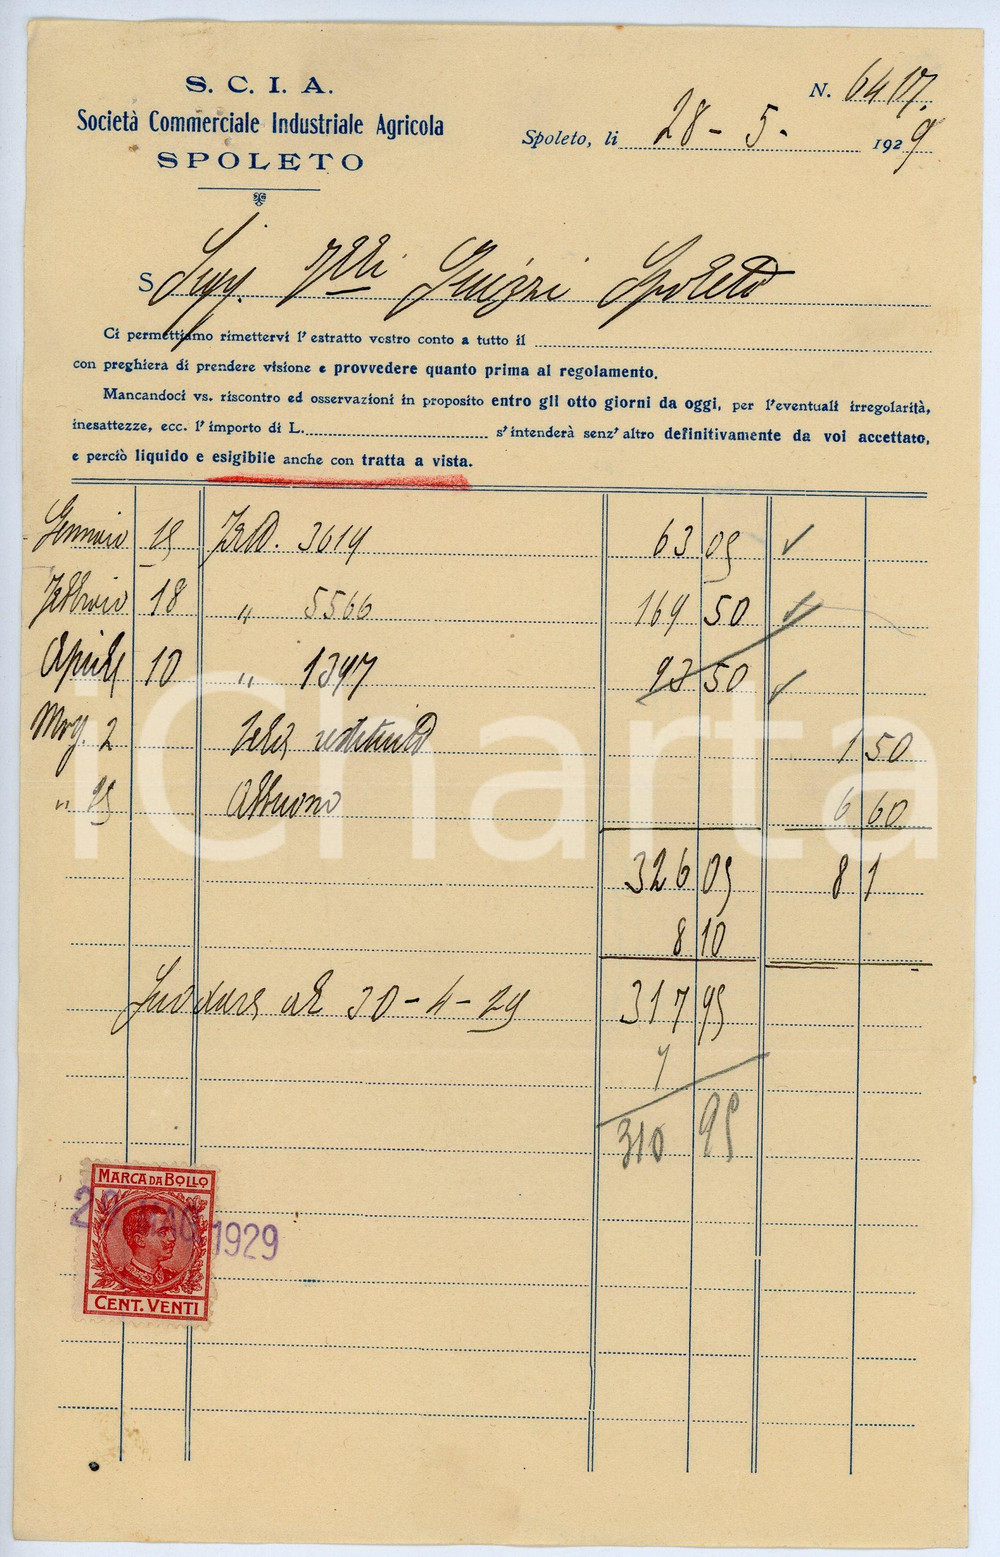 S. C. I. A.
Società Commerciale Industriale Agricola
SPOLETO
N. 6417.
Spoleto, li 28 - 5 - 1929
S Sigg. Flli Guizzi Spoleto
Ci permettiamo rimettervi l'estratto vostro conto a tutto il
con preghiera di prendere visione e provvedere quanto prima al regolamento.
Mancandoci vs. riscontro ed osservazioni in proposito entro gli otto giorni da oggi, per l'eventuali irregolarità,
inesattezze, ecc. l'importo di L. s'intenderà senz'altro definitivamente da voi accettato,
e perciò liquido e esigibile anche con tratta a vista.
Gennaio 15 Fatt. 3614 63 05
Febbraio 18 " 5566 169 50
Aprile 10 " 1397 93 50
Mag. 2 Tela restituita 1 50
" 25 Abbuono 6 60
326 05 8 1
8 10
al 30-4-29 317 95
7
310 95
MARCA DA BOLLO
MAG 1929
CENT. VENTI
iCharta